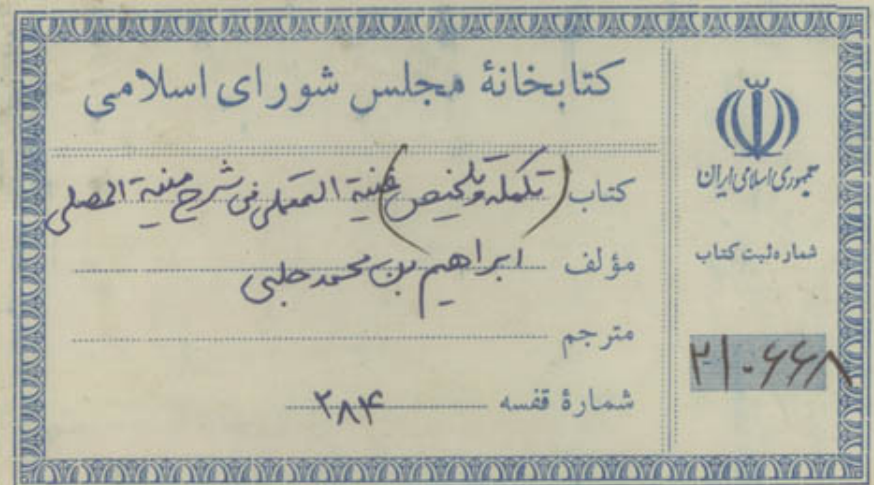 کتابخانهٔ مجلس شورای اسلامی
کتاب (تکمله و تلخیص) غنیة المتملی فی شرح منیة المصلی
مؤلف ابراهیم بن محمد حلبی
مترجم
شمارهٔ قفسه ۲۸۴
جمهوری اسلامی ایران
شماره ثبت کتاب
۲۱۰۶۶۸